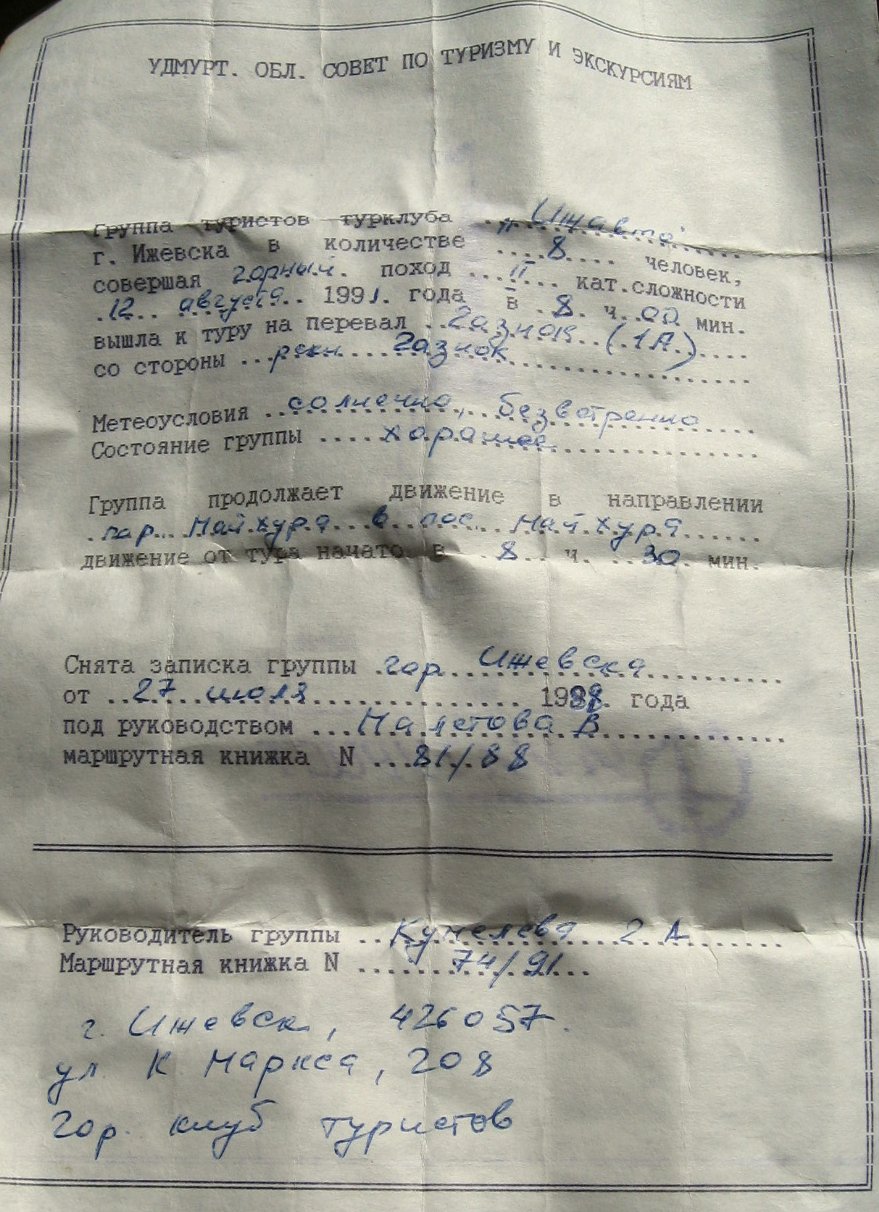 УДМУРТ. ОБЛ. СОВЕТ ПО ТУРИЗМУ И ЭКСКУРСИЯМ
Группа туристов турклуба .. "Ижавто" ....
г. Ижевска в количестве .... 8 .... человек,
совершая горный. поход ... II ... кат.сложности
.12.. августа.. 1991. года в .8. ч. 00 мин.
вышла к туру на перевал ..Газнок..(.1А.)....
со стороны ...реки....Газнок..................
Метеоусловия ..солнечно,..безветренно....
Состояние группы ....хорошее..................
Группа продолжает движение в направлении
.пер...Майхура..в пос...Майхура......
движение от тура начато в ..8.. ч. ..30. мин.
Снята записка группы .гор...Ижевска..........
от ..27..июля................. 1988. года
под руководством ...........В.............
маршрутная книжка N ...81/.88
Руководитель группы .................2.А.......
Маршрутная книжка N .......74/91...
г. Ижевск, 426057.
ул К Маркса, 208
Гор. клуб туристов